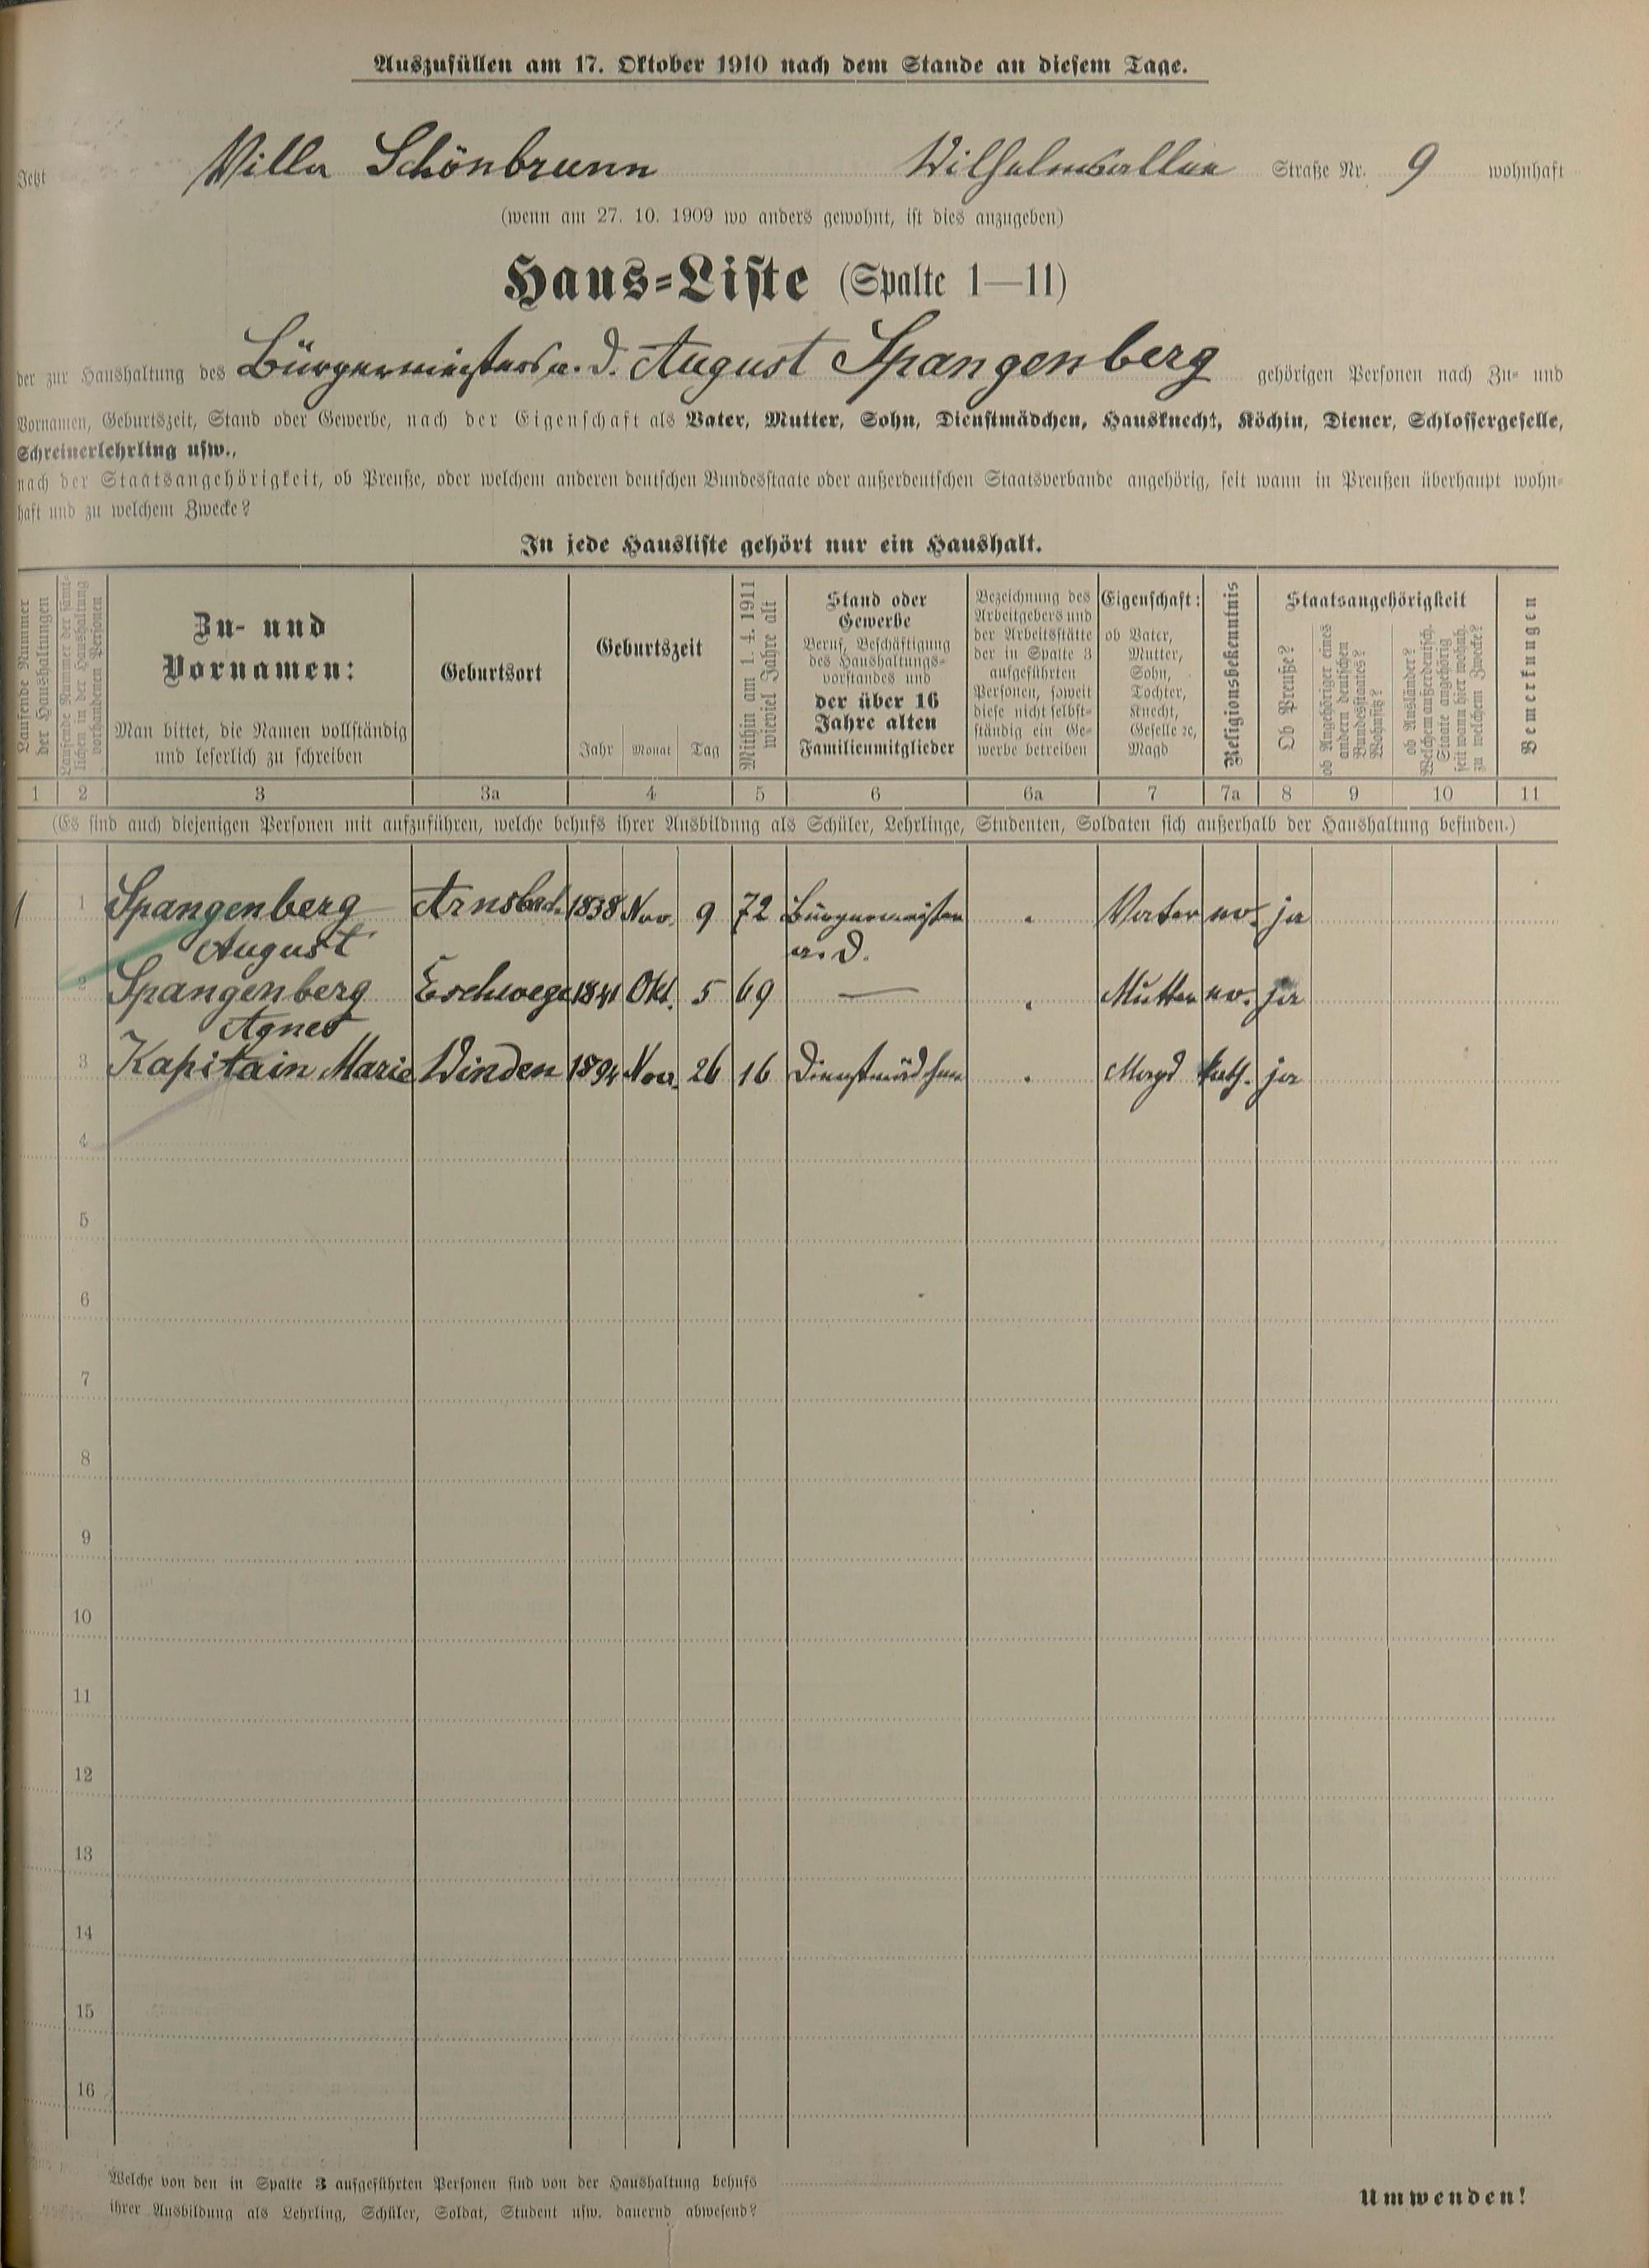 Auszufüllen am 17. Oktober 1910 nach dem Stande an diesem Tage.
Jetzt Villa Schönbrunn Wilhelmsallee Straße Nr. 9 wohnhaft
(wenn am 27. 10. 1909 wo anders gewohnt, ist dies anzugeben)
Haus-Liste (Spalte 1—11)
der zur Haushaltung des Bürgermeisters a. D. August Spangenberg gehörigen Personen nach Zu- und
Vornamen, Geburtszeit, Stand oder Gewerbe, nach der Eigenschaft als Vater, Mutter, Sohn, Dienstmädchen, Hausknecht, Köchin, Diener, Schlossergeselle,
Schreinerlehrling usw.,
nach der Staatsangehörigkeit, ob Preuße, oder welchem anderen deutschen Bundesstaate oder außerdeutschen Staatsverbande angehörig, seit wann in Preußen überhaupt wohn-
haft und zu welchem Zwecke?
In jede Hausliste gehört nur ein Haushalt.
Laufende Nummer
der Haushaltungen
Laufende Nummer der sämt-
lichen in der Haushaltung
vorhandenen Personen
Zu- und
Vornamen:
Man bittet, die Namen vollständig
und leserlich zu schreiben
Geburtsort
Geburtszeit
Jahr Monat Tag
Mithin am 1. 4. 1911
wieviel Jahre alt
Stand oder
Gewerbe
Beruf, Beschäftigung
des Haushaltungs-
vorstandes und
der über 16
Jahre alten
Familienmitglieder
Bezeichnung des
Arbeitgebers und
der Arbeitsstätte
der in Spalte 3
aufgeführten
Personen, soweit
diese nicht selbst-
ständig ein Ge-
werbe betreiben
Eigenschaft:
ob Vater,
Mutter,
Sohn,
Tochter,
Knecht,
Geselle ꝛc,
Magd
Religionsbekenntnis
Staatsangehörigkeit
Ob Preuße?
ob Angehöriger eines
andern deutschen
Bundesstaates?
Wohnsitz?
ob Ausländer?
Welchem außerdeutsch.
Staate angehörig
seit wann hier wohnh.
zu welchem Zwecke?
Bemerkungen
1 2 3 3a 4 5 6 6a 7 7a 8 9 10 11
(Es sind auch diejenigen Personen mit aufzuführen, welche behufs ihrer Ausbildung als Schüler, Lehrlinge, Studenten, Soldaten sich außerhalb der Haushaltung befinden.)
1 1 Spangenberg Arnsbach 1838 Nov. 9 72 Bürgermeister . Vater ev. ja
August a. D.
2 Spangenberg Eschwege 1841 Okt. 5 69 — . Mutter ev. ja
Agnes
3 Kapitain Marie Winden 1894 Nov. 26 16 Dienstmädchen . Magd kath. ja
4
5
6
7
8
9
10
11
12
13
14
15
16
Welche von den in Spalte 3 aufgeführten Personen sind von der Haushaltung behufs
ihrer Ausbildung als Lehrling, Schüler, Soldat, Student usw. dauernd abwesend?
Umwenden!